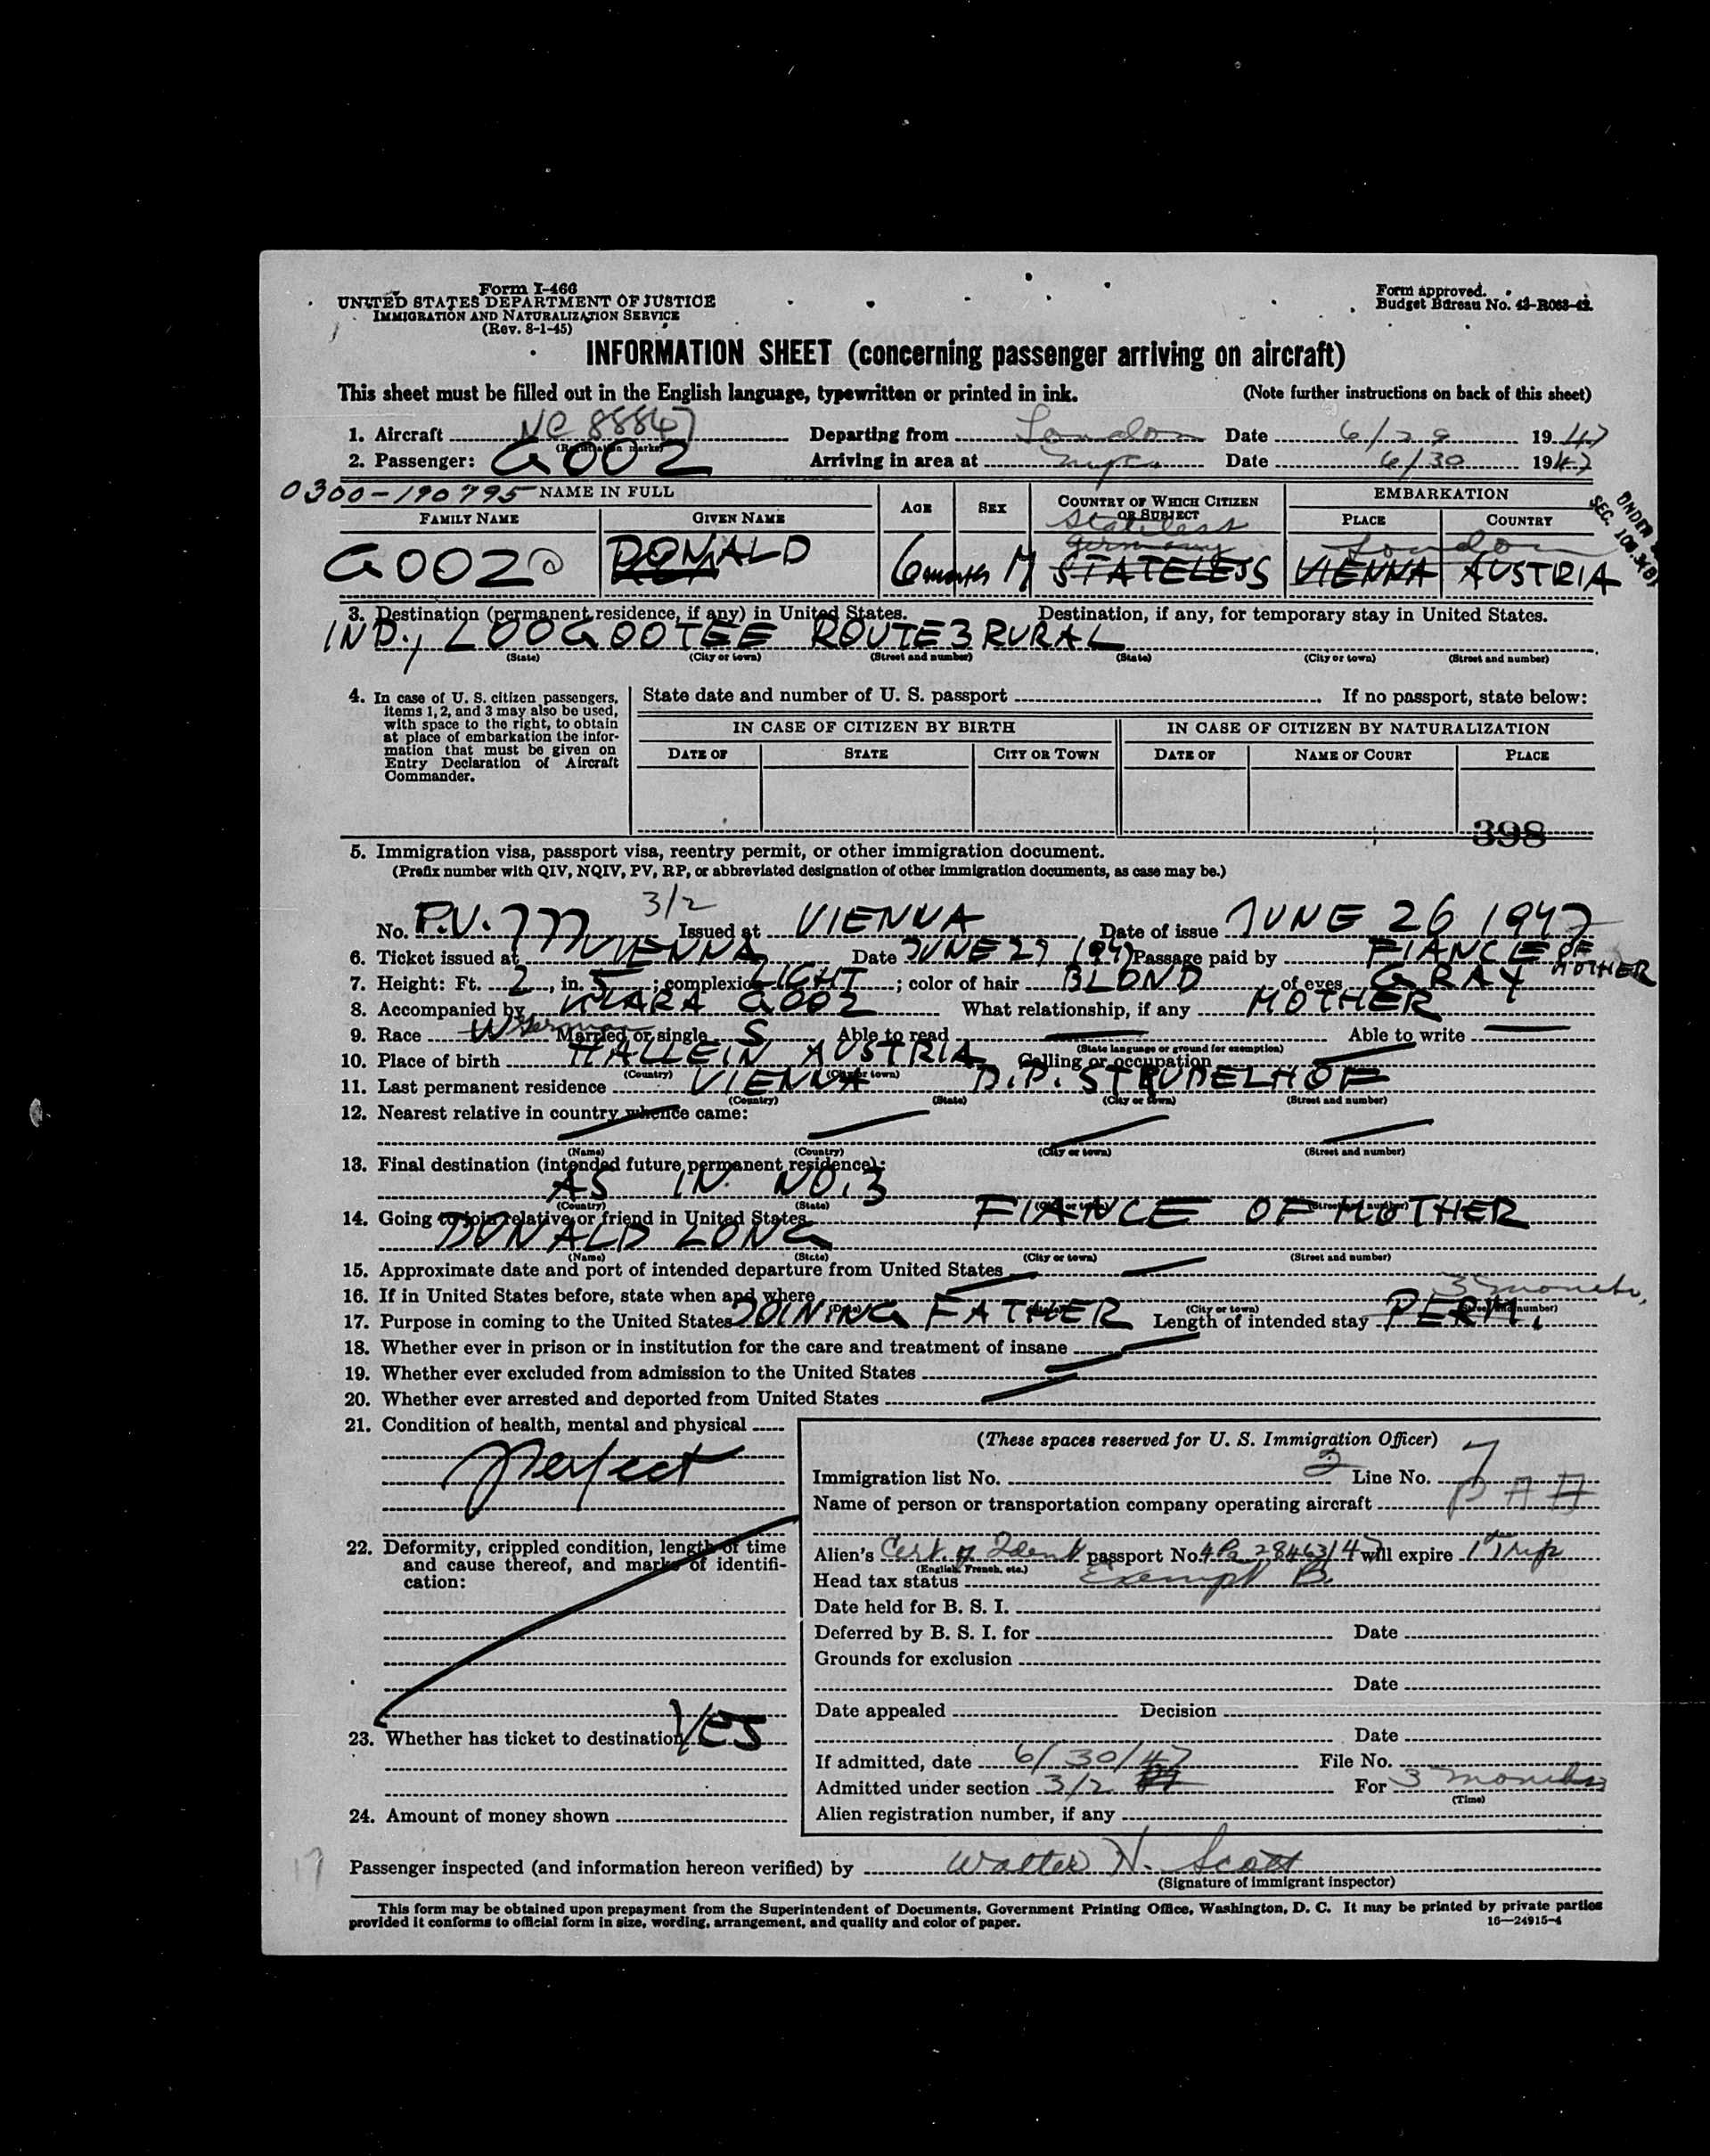 Form I-466
UNITED STATES DEPARTMENT OF JUSTICE
IMMIGRATION AND NATURALIZATION SERVICE
(Rev. 8-1-45)
Form approved.
Budget Bureau No. 43-R063-42.
INFORMATION SHEET (concerning passenger arriving on aircraft)
This sheet must be filled out in the English language, typewritten or printed in ink. (Note further instructions on back of this sheet)
1. Aircraft NC 88847 Departing from London Date 6/29 1947
(Registration marks)
2. Passenger: GOOZ Arriving in area at nyc Date 6/30 1947
0300-190795 NAME IN FULL AGE SEX COUNTRY OF WHICH CITIZEN OR SUBJECT EMBARKATION
FAMILY NAME GIVEN NAME PLACE COUNTRY
UNDER
SEC.
Stateless
Germany London
GOOZ DONALD 6 months M STATELESS VIENNA AUSTRIA
3. Destination (permanent residence, if any) in United States. Destination, if any, for temporary stay in United States.
IND., LOOGOOTEE ROUTE 3 RURAL
(State) (City or town) (Street and number) (State) (City or town) (Street and number)
4. In case of U. S. citizen passengers, items 1, 2, and 3 may also be used, with space to the right, to obtain at place of embarkation the information that must be given on Entry Declaration of Aircraft Commander.
State date and number of U. S. passport If no passport, state below:
IN CASE OF CITIZEN BY BIRTH IN CASE OF CITIZEN BY NATURALIZATION
DATE OF STATE CITY OR TOWN DATE OF NAME OF COURT PLACE
398
5. Immigration visa, passport visa, reentry permit, or other immigration document.
(Prefix number with QIV, NQIV, PV, RP, or abbreviated designation of other immigration documents, as case may be.)
3/2
No. P.V. 777 Issued at VIENNA Date of issue JUNE 26 1947
6. Ticket issued at VIENNA Date JUNE 27 1947 Passage paid by FIANCE OF MOTHER
7. Height: Ft. 2, in. 5; complexion LIGHT; color of hair BLOND of eyes GRAY
8. Accompanied by KLARA GOOZ What relationship, if any MOTHER
9. Race W German Married or single S Able to read Able to write
(State language or ground for exemption)
10. Place of birth HALLEIN AUSTRIA Calling or occupation
(Country) (City or town)
11. Last permanent residence VIENNA D.P. STRUDELHOF
(Country) (State) (City or town) (Street and number)
12. Nearest relative in country whence came:
(Name) (Country) (City or town) (Street and number)
13. Final destination (intended future permanent residence):
AS IN NO. 3
(Country) (State) (City or town) (Street and number)
14. Going to join relative or friend in United States FIANCE OF MOTHER
DONALD LONG
(Name) (State) (City or town) (Street and number)
15. Approximate date and port of intended departure from United States
16. If in United States before, state when and where 3 months,
(Date) (State) (City or town) (Street and number)
17. Purpose in coming to the United States JOINING FATHER Length of intended stay PERM.
18. Whether ever in prison or in institution for the care and treatment of insane
19. Whether ever excluded from admission to the United States
20. Whether ever arrested and deported from United States
21. Condition of health, mental and physical
perfect
22. Deformity, crippled condition, length of time and cause thereof, and marks of identification:
23. Whether has ticket to destination YES
24. Amount of money shown
(These spaces reserved for U. S. Immigration Officer)
Immigration list No. 2 Line No. 7
Name of person or transportation company operating aircraft PAA
Alien's Cert. of Ident passport No. will expire 1 Trip
(English, French, etc.)
Head tax status Exempt B
Date held for B. S. I.
Deferred by B. S. I. for Date
Grounds for exclusion
Date
Date appealed Decision
Date
If admitted, date 6/30/47 File No.
Admitted under section 3/2 For 3 months
(Time)
Alien registration number, if any
17
Passenger inspected (and information hereon verified) by Walter N. Scott
(Signature of immigrant inspector)
This form may be obtained upon prepayment from the Superintendent of Documents, Government Printing Office, Washington, D. C. It may be printed by private parties
provided it conforms to official form in size, wording, arrangement, and quality and color of paper. 16—24915-4